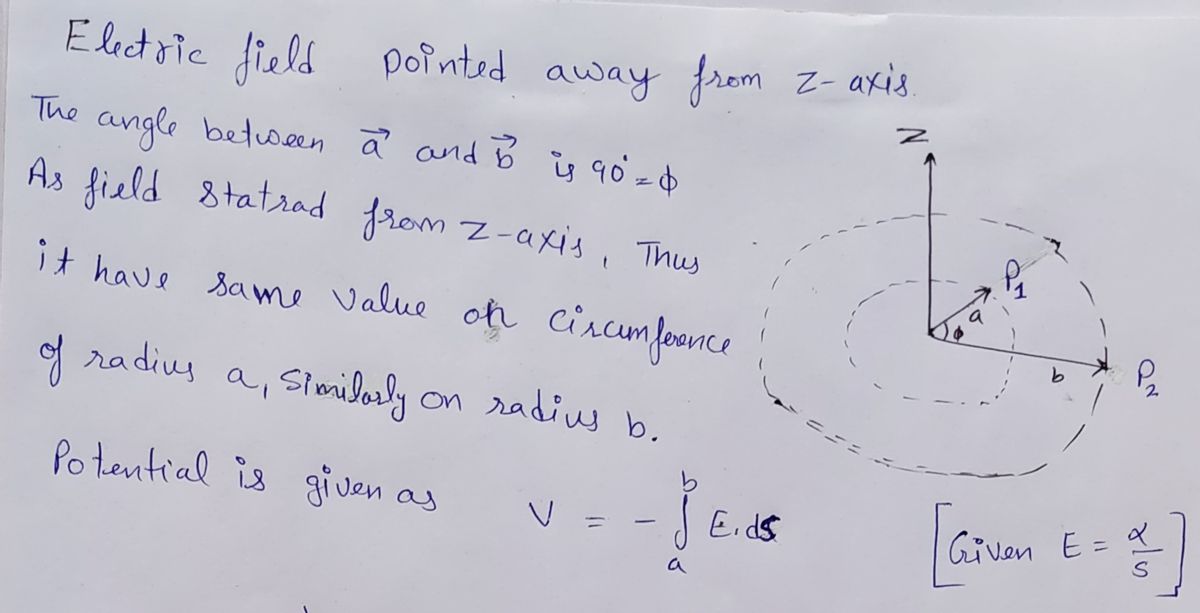 Electric field pointed away from z-axis.
The angle between a⃗ and b⃗ is 90° = ϕ
As field statrad from z-axis, Thus
it have same value on circumference
of radius a, similarly on radius b.
Potential is given as V = - ∫_a^b E.ds
[Given E = α/s]
Z
P₁
a
ϕ
b
P₂